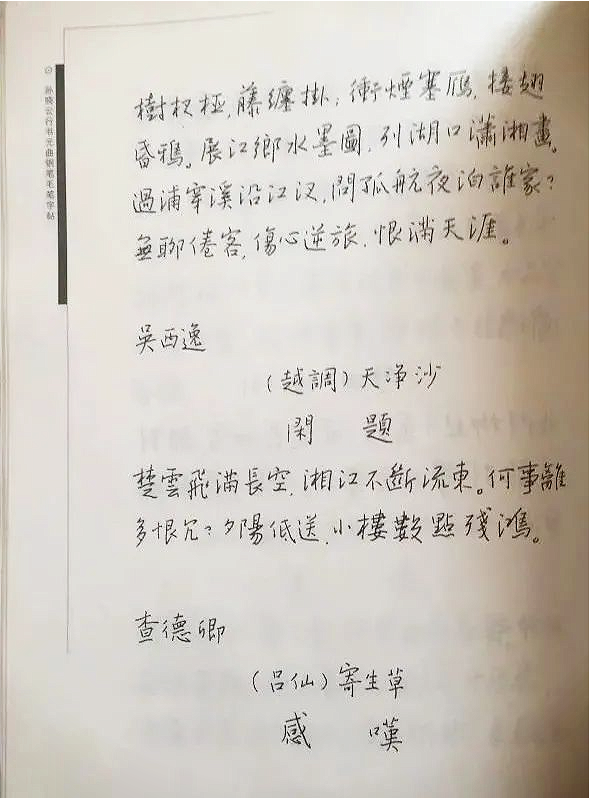 孙晓云行书元曲钢笔毛笔字帖
樹杈椏,藤纏掛;衝煙塞雁,接翅
昏鴉。展江鄉水墨圖,列湖口瀟湘畫。
過浦穿溪沿江汊,問孤航夜泊誰家?
無聊倦客,傷心逆旅,恨滿天涯。
吳西逸
(越調)天浄沙
閑 題
楚雲飛滿長空,湘江不斷流東。何事離
多恨冗?夕陽低送,小樓數點殘鴻。
查德卿
(吕仙)寄生草
感 嘆